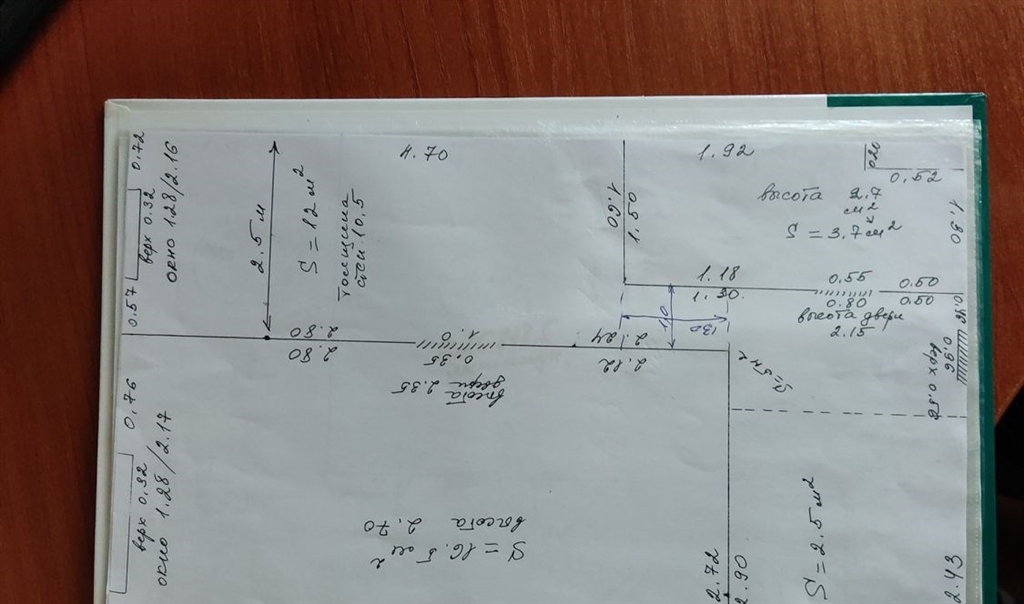 0.72
верх 0.32
окно 1.28/2.16
0.57
2.5 м
S = 12 м²
Толщина
стен 10.5
4.70
1.92
0.20
0,52
1.60
1.50
высота 2.7
м²
S = 3.7 м²
1.80
1.18
1.30
0.55
0.80
0.50
0.50
высота двери
2.15
0.96
верх 0.56
2.80
2.80
1.0
0.35
высота
двери 2.35
2.24
2.12
110
130
S = 5 м²
0,76
верх 0,32
окно 1.28/2.17
S = 16.5 м²
высота 2.70
2.72
2.90
S = 2.5 м²
2.43